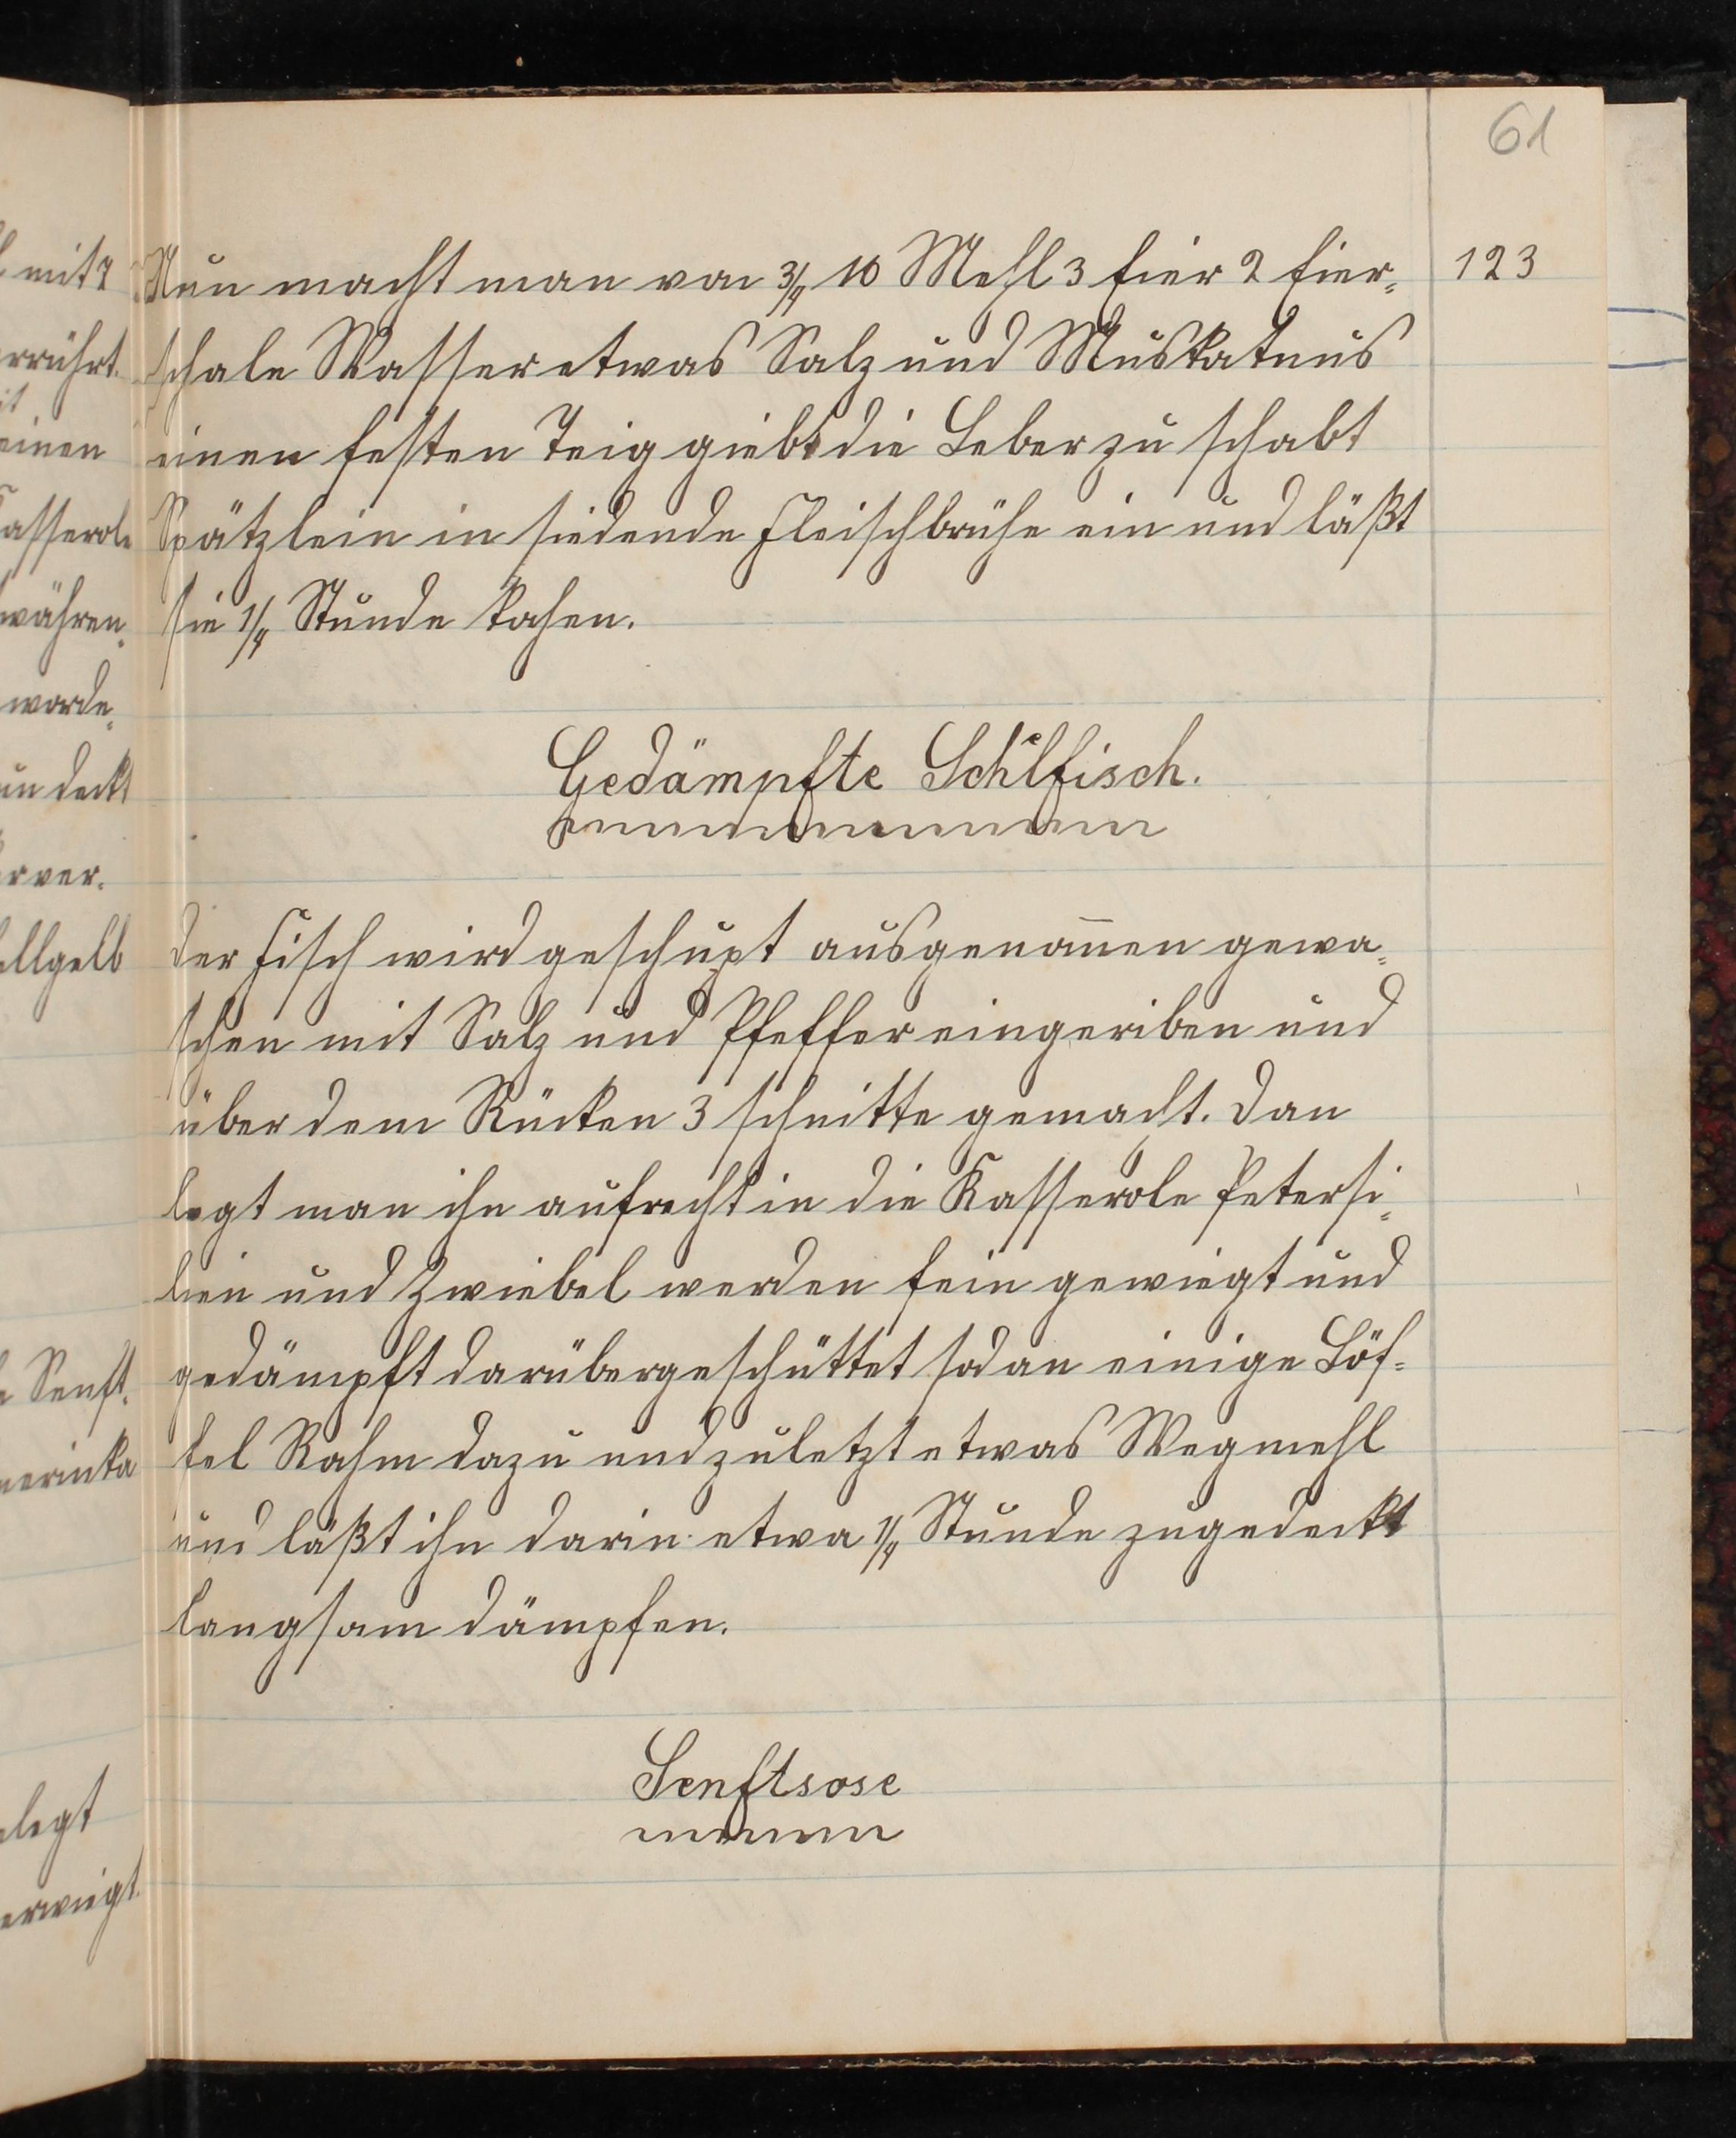 61
123
Nun macht man von 3/4 ℔ Mehl 3 Eier 2 Eier-
schale Wasser etwas Salz und Muskatnus
einen festen Teig giebt die Leber zu schabt
Spätzlein in siedende Fleischbrühe ein und läßt
sie 1/4 Stunde kohen.
Gedämpfte Schlfisch.
Der Fisch wird geschupt ausgenom̅en gewa-
schen mit Salz und Pfeffer eingeriben und
über dem Rücken 3 schnitte gemacht. Dan
legt man ihn aufrecht in die Kasserole Petersi-
lien und Zwiebel werden fein gewiegt und
gedämpft darübergeschüttet sodan einige Löf-
fel Rahm dazu und zuletzt etwas Wegmehl
und läßt ihn darin etwa 1/4 Stunde zugedeckt
langsam dämpfen.
Senftsose